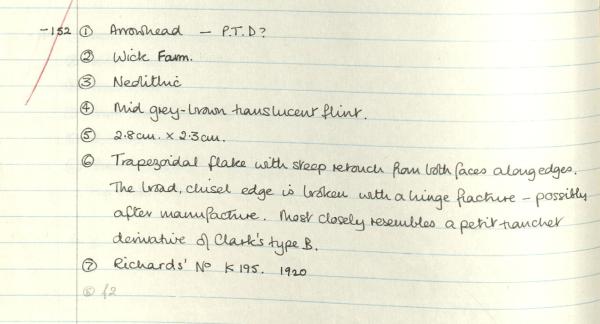 -152 ① Arrowhead – P.T.D?
② Wick Farm.
③ Neolithic
④ Mid grey-brown translucent flint.
⑤ 2.8cm. × 2.3cm.
⑥ Trapezoidal flake with steep retouch from both faces along edges.
The broad, chisel edge is broken with a hinge fracture – possibly
after manufacture. Most closely resembles a petit tranchet
derivative of Clark's type B.
⑦ Richards' No K195. 1920
⑧ f2